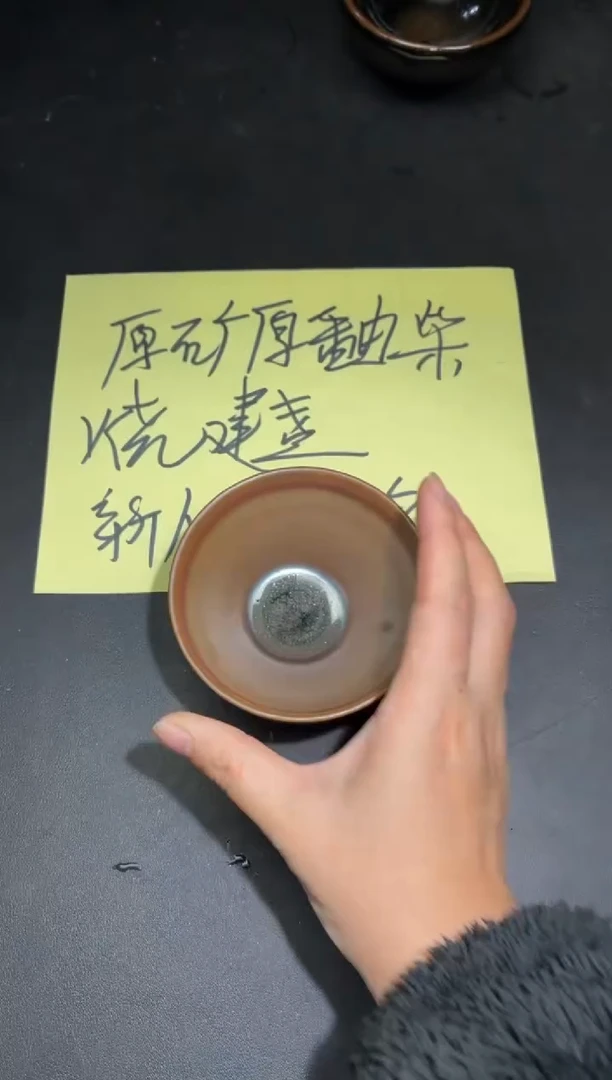 原矿原釉柴
烧建盏
新